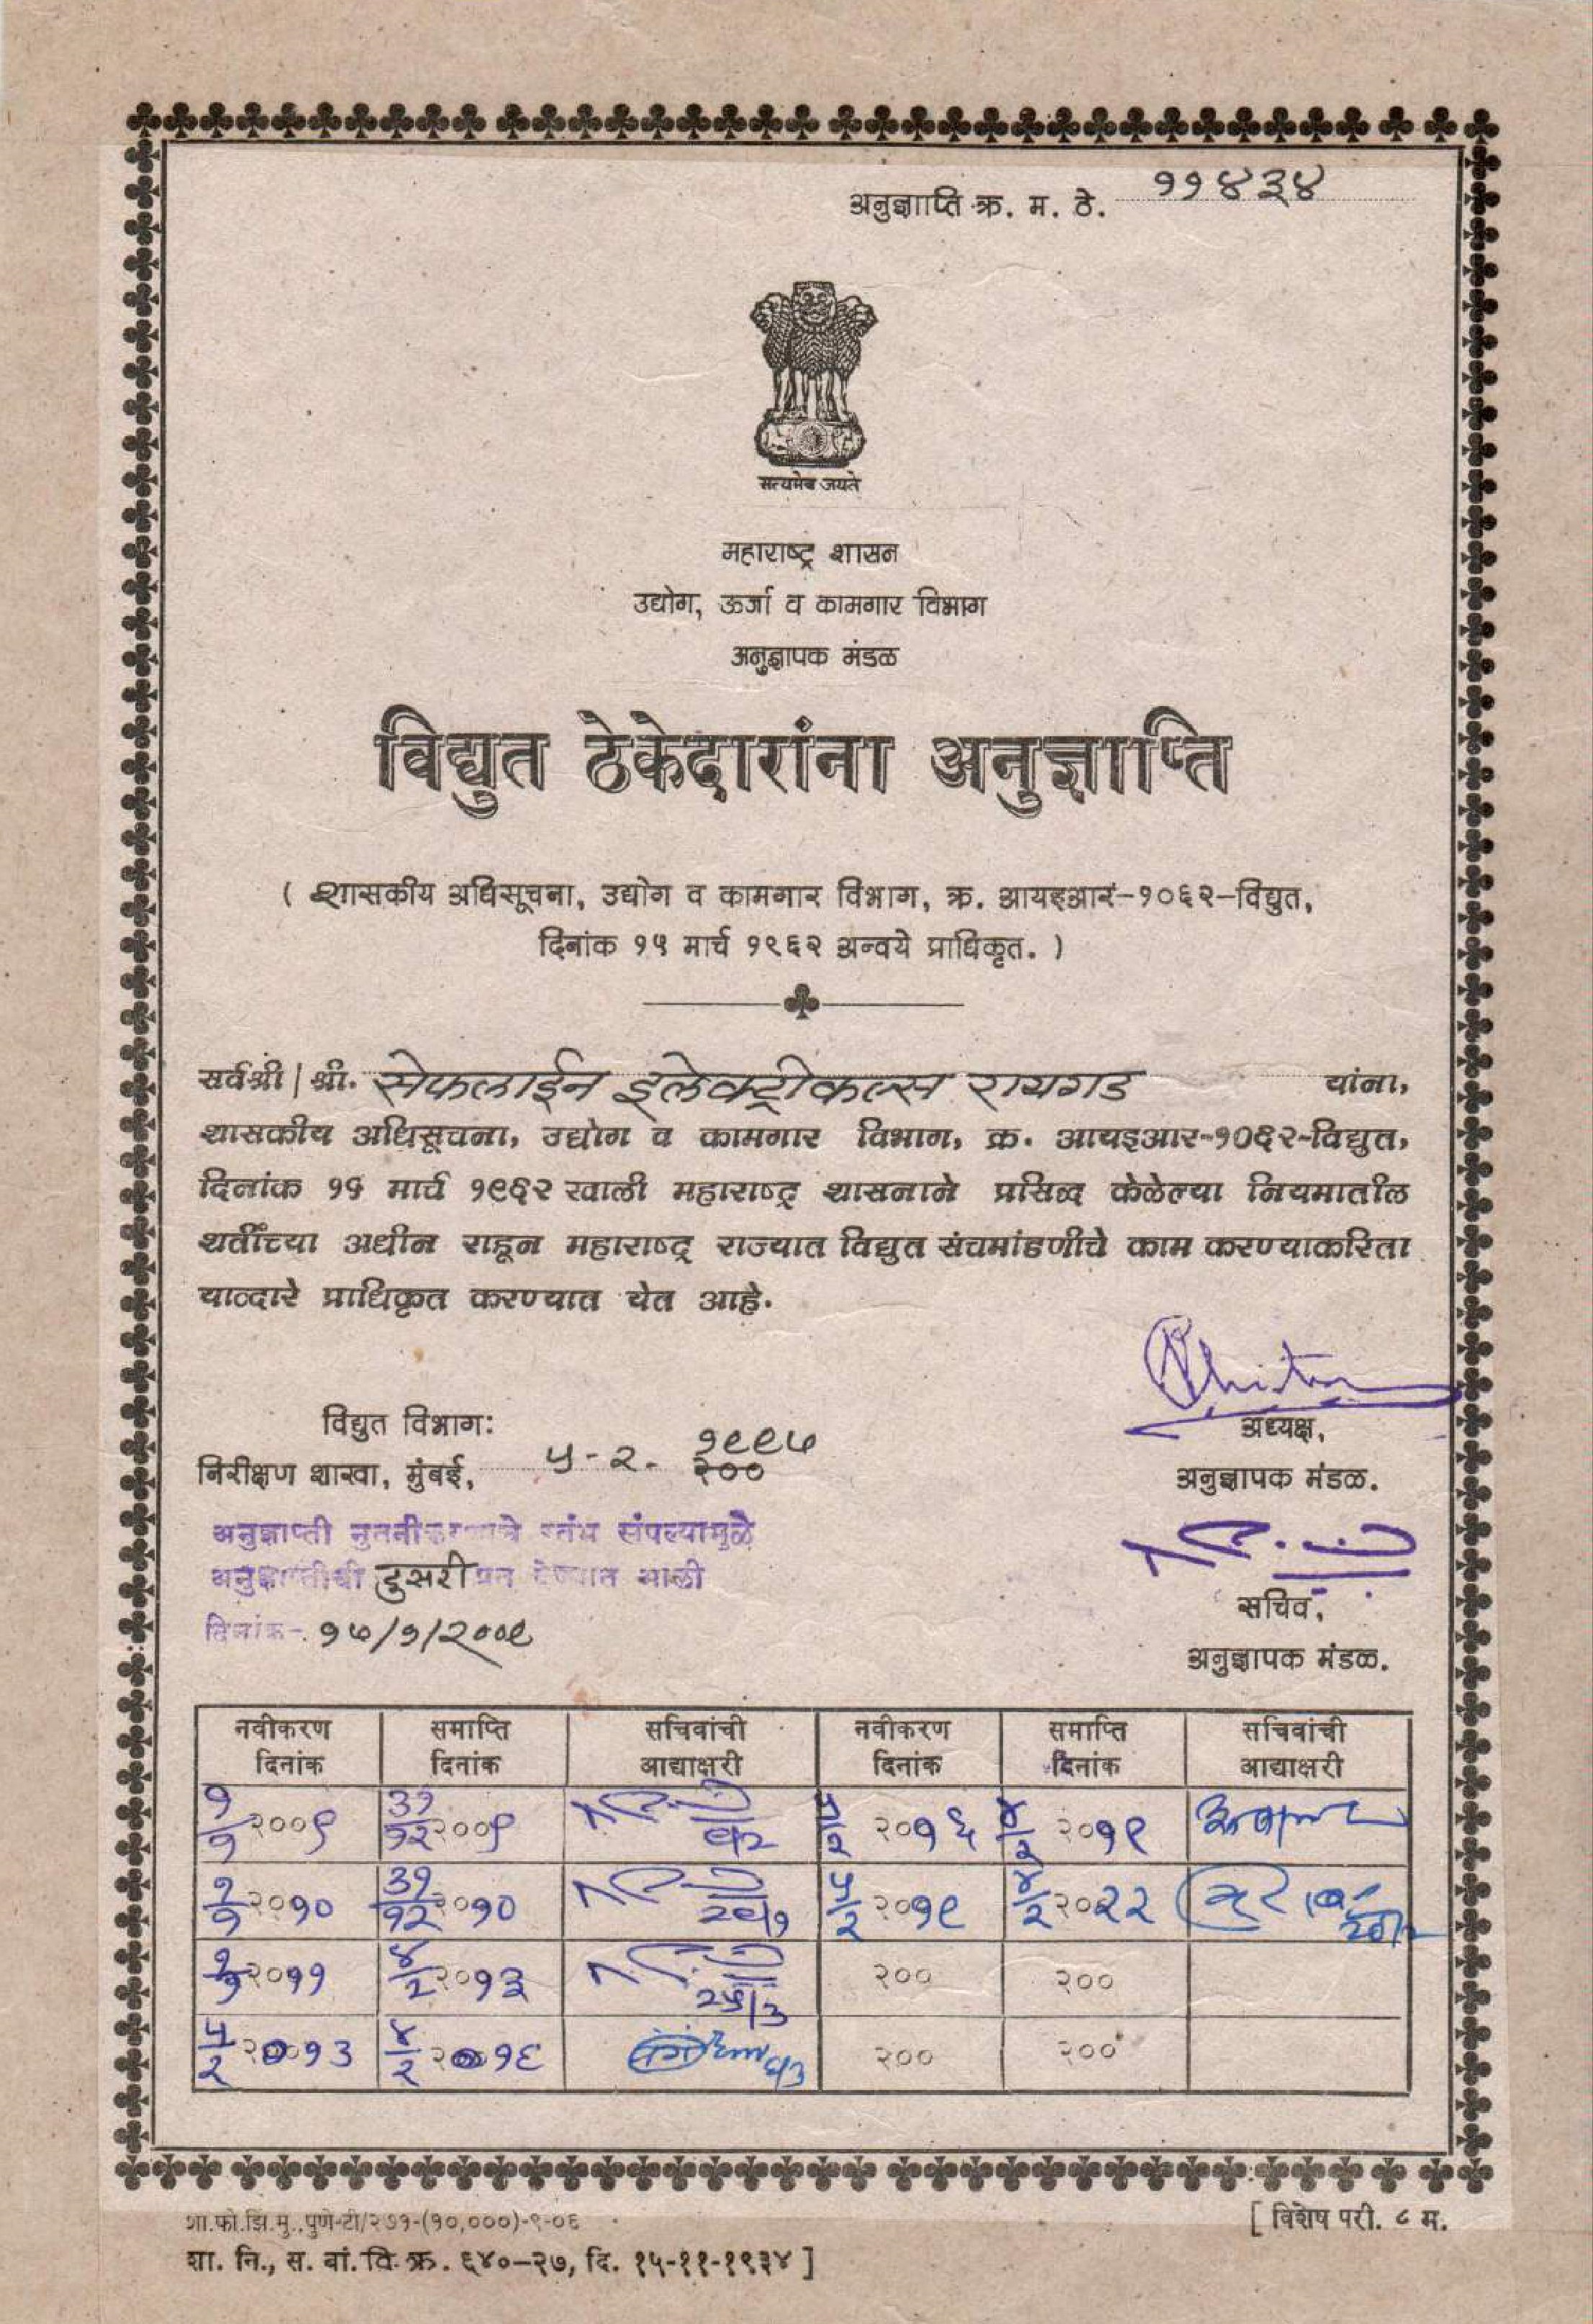 अनुज्ञाप्ति क्र. म. ठे. ११४३४
सत्यमेव जयते
महाराष्ट्र शासन
उद्योग, ऊर्जा व कामगार विभाग
अनुज्ञापक मंडळ
विद्युत ठेकेदारांना अनुज्ञाप्ति
( शासकीय अधिसूचना, उद्योग व कामगार विभाग, क्र. आयइआर-१०६२-विद्युत,
दिनांक १५ मार्च १९६२ अन्वये प्राधिकृत. )
सर्वश्री / श्री. सेफलाईन इलेक्ट्रीकल्स रायगड यांना,
शासकीय अधिसूचना, उद्योग व कामगार विभाग, क्र. आयइआर-१०६२-विद्युत,
दिनांक १५ मार्च १९६२ खाली महाराष्ट्र शासनाने प्रसिध्द केळेल्या नियमातील
शर्तीच्या अधीन राहून महाराष्ट्र राज्यात विद्युत संचमांडणीचे काम करण्याकरिता
याव्दारे प्राधिकृत करण्यात येत आहे.
अध्यक्ष,
विद्युत विभाग:
निरीक्षण शाखा, मुंबई, ५-२- १९९७ २००
अनुज्ञापक मंडळ.
अनुज्ञाप्ती नुतनीकरणाचे स्तंभ संपल्यामुळे
अनुज्ञाप्तीची दुसरी प्रत देण्यात आली
दिनांक- १७/१/२००९
सचिव,
अनुज्ञापक मंडळ.
नवीकरण दिनांक समाप्ति दिनांक सचिवांची आद्याक्षरी नवीकरण दिनांक समाप्ति दिनांक सचिवांची आद्याक्षरी
१/१ २००९ ३१/१२ २००९ ५/२ २०१६ ४/२ २०१९
१/१ २०१० ३१/१२ २०१० ५/२ २०१९ ४/२ २०२२
१/१ २०११ ४/२ २०१३ २००२००
५/२ २०१३ ४/२ २०१६ २०० २००
शा.फो.झिं.मु.,पुणे-टी/२७१-(१०,०००)-९-०६
[ विशेष परी. ८ म.
शा. नि., स. बां. वि. क्र. ६४०-२७, दि. १५-११-१९३४ ]